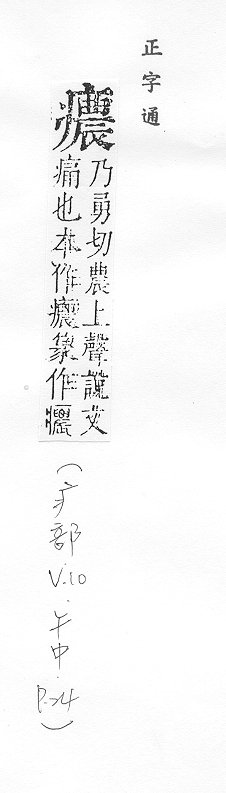 正字通
癑
乃勇切農上聲說文
痛也本作篆作
(疒部 V.10.午中.P.24)